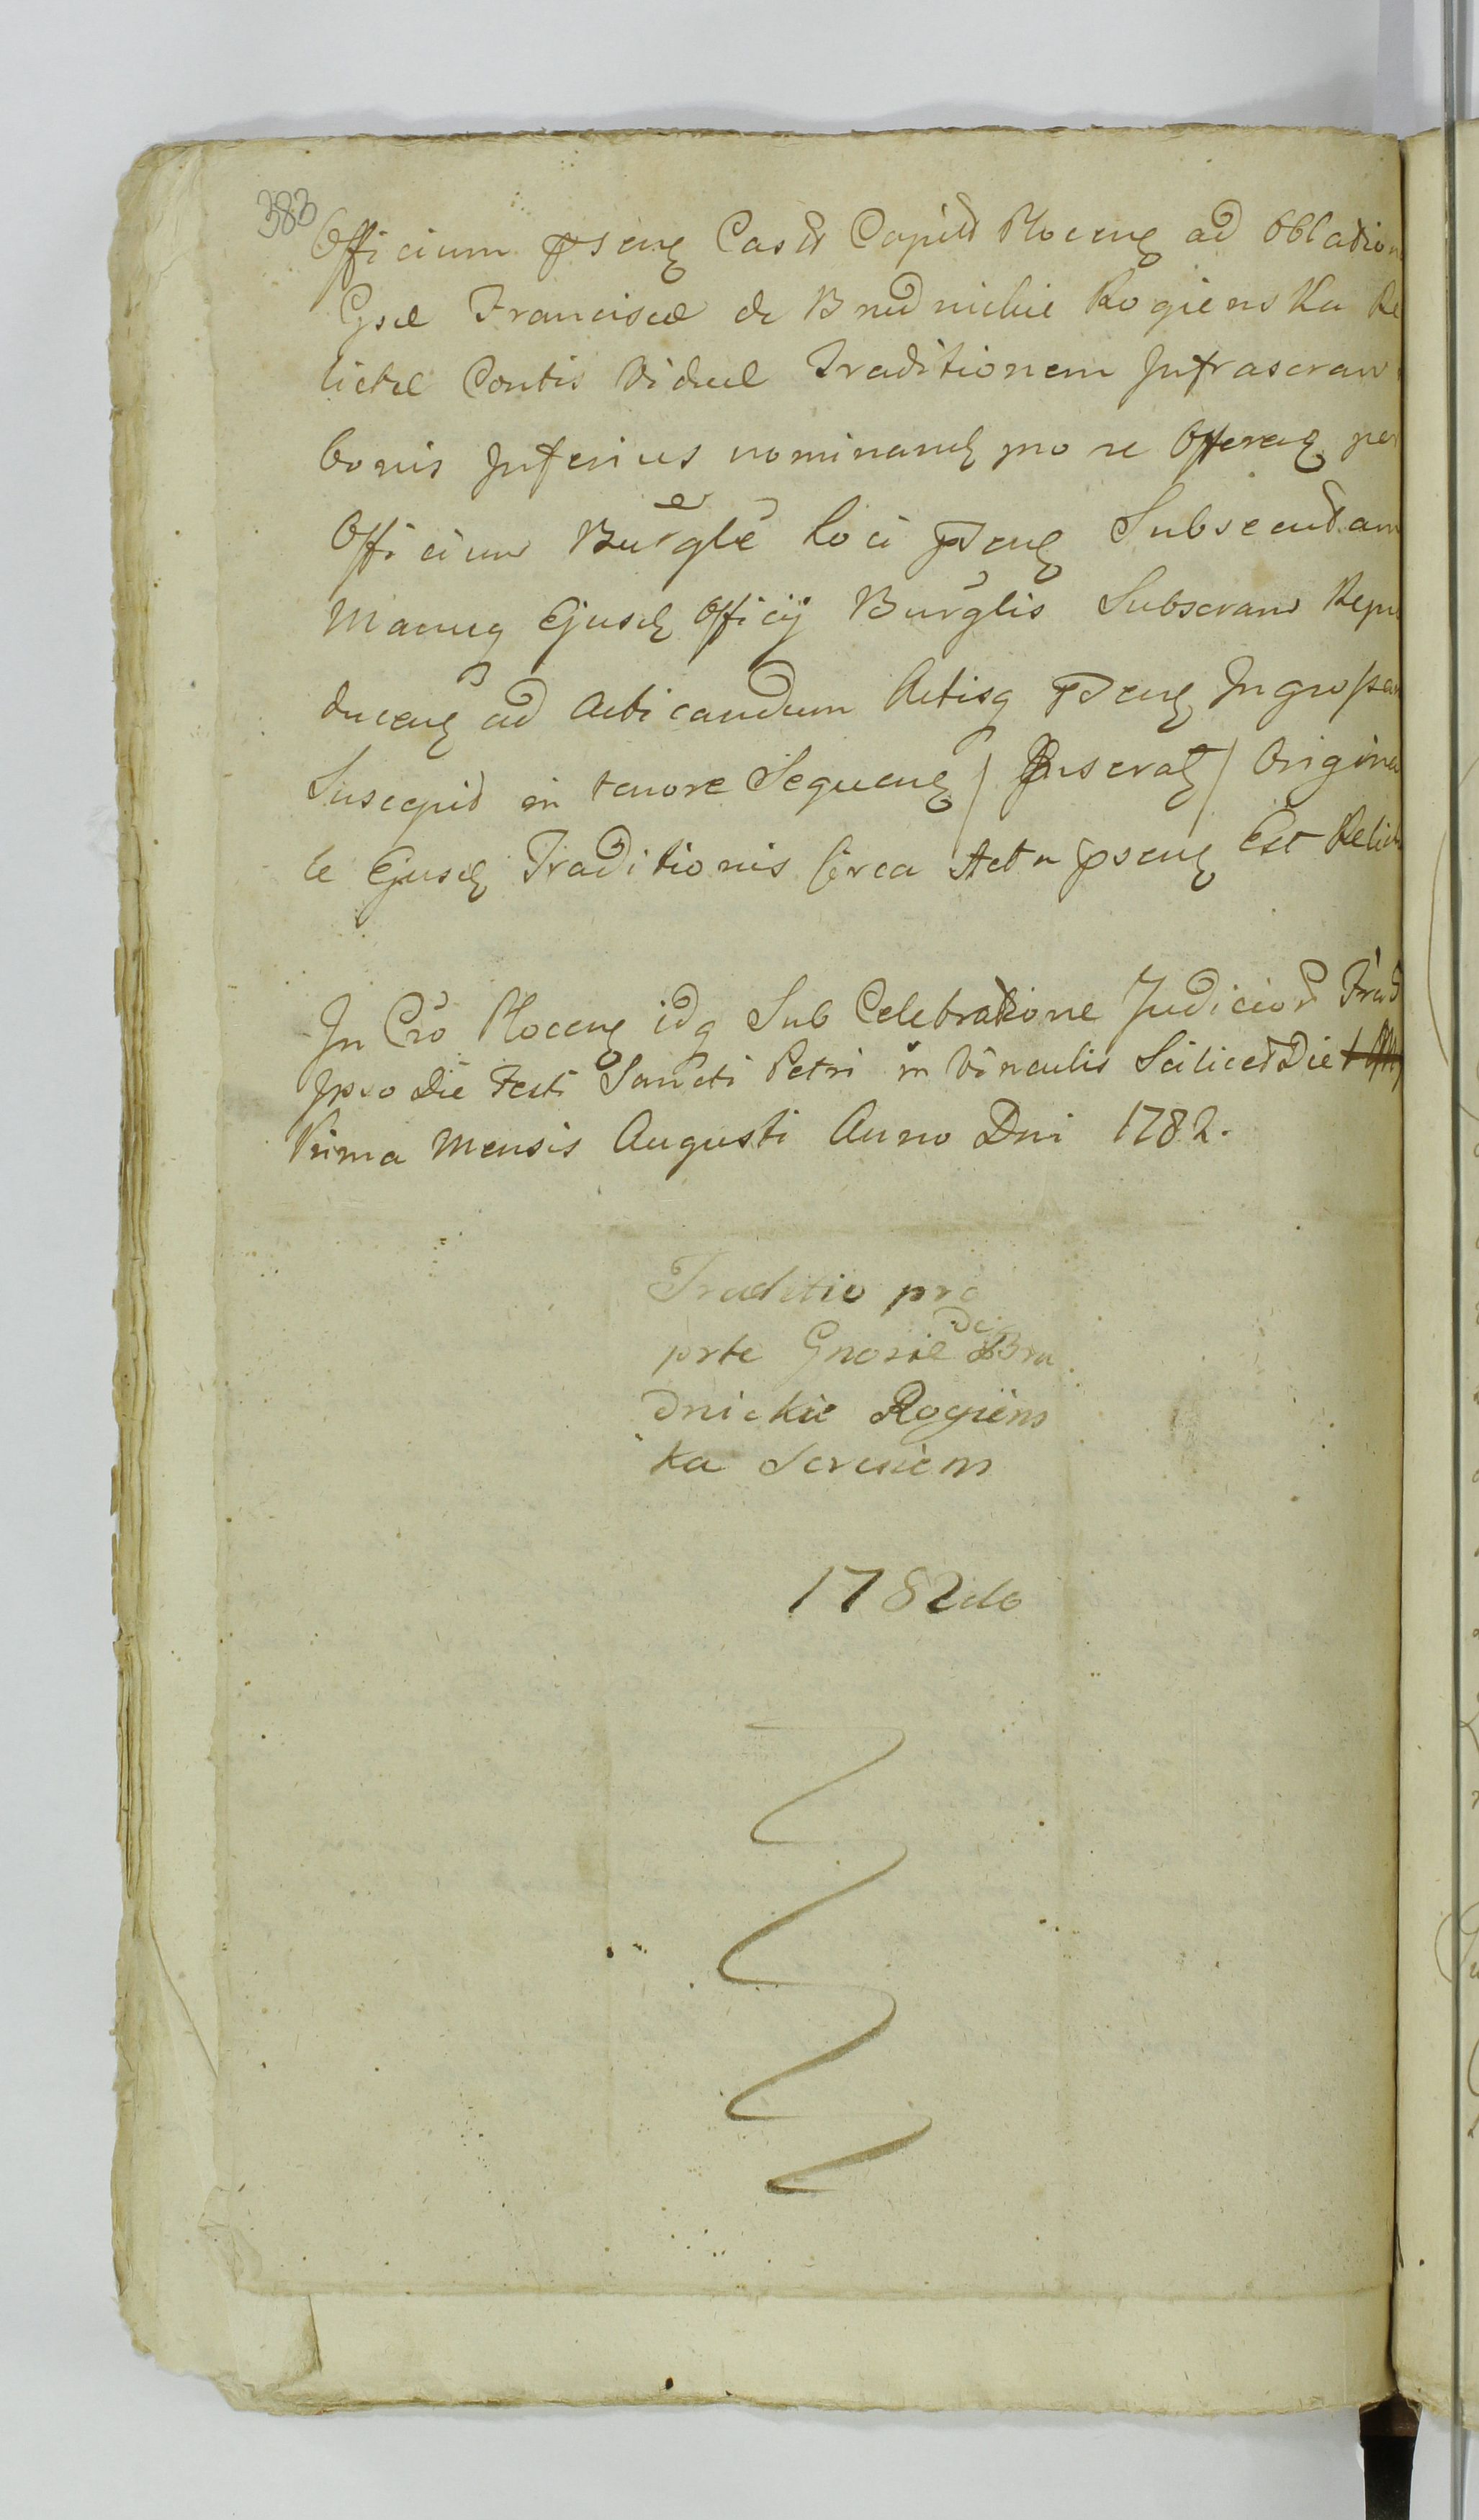 383
Officium pseng Castr Capitt Ploceng ad Oblation
Gsæ Franciscæ de Brudnickie Rogienska Re
lictæ Contis Viduæ Traditionem Infrascran
bonis Inferius nominand pro se Offereng per
Officium Burgle loci pseng Subsecutam
Manuq Ejusd Officij Burglis Subscram Repro
duceng ad Acticandum Actisq pseng Ingrossan
Suscepit in tenore Sequeng / Inserat / Origina
le Ejusd Traditionis Circa Acta pseng Est Relict
In Cro Ploceng idq Sub Celebratione Judicior
Ipso Die Festi Sancti Petri in Vinculis Scilicet Die
Prima Mensis Augusti Anno Dni 1782.
Traditio pro
prte Gnosæ de Bru
dnickie Rogiens
ka serviens
1782do